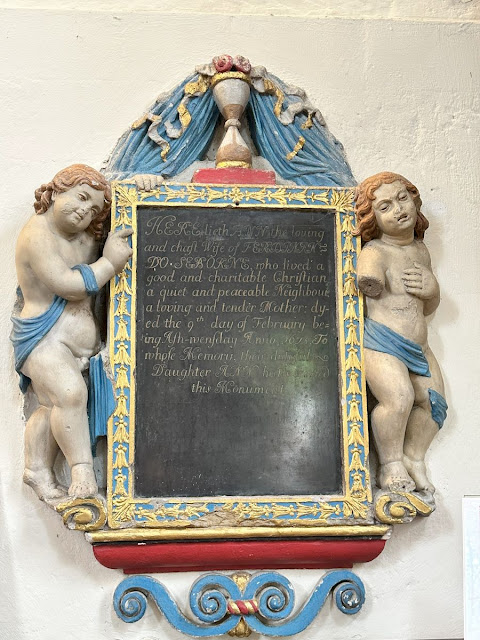 HERE lieth ANN the loving
and chast Wife of FERDINAN=
DO-SEBORNE, who lived a
good and charitable Christian
a quiet and peaceable Neighbour
a loving and tender Mother: dy-
ed the 9th day of February be-
ing Ash-wensday Anno To
whose Memory
Daughter ANN
this Monument